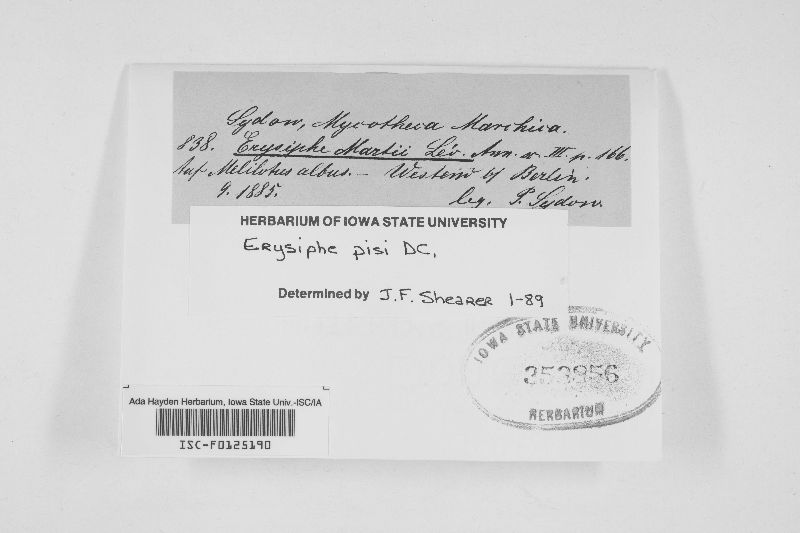 Sydow, Mycotheca Marchica.
838. Erysiphe Martii Lév. Ann. III p. 166.
Auf Melilotus albus. — Westend b/ Berlin.
9. 1885. leg. P. Sydow.
HERBARIUM OF IOWA STATE UNIVERSITY
Erysiphe pisi DC.
Determined by J.F. Shearer 1-89
IOWA STATE UNIVERSITY
353856
HERBARIUM
Ada Hayden Herbarium, Iowa State Univ.-ISC/IA
ISC-F0125190